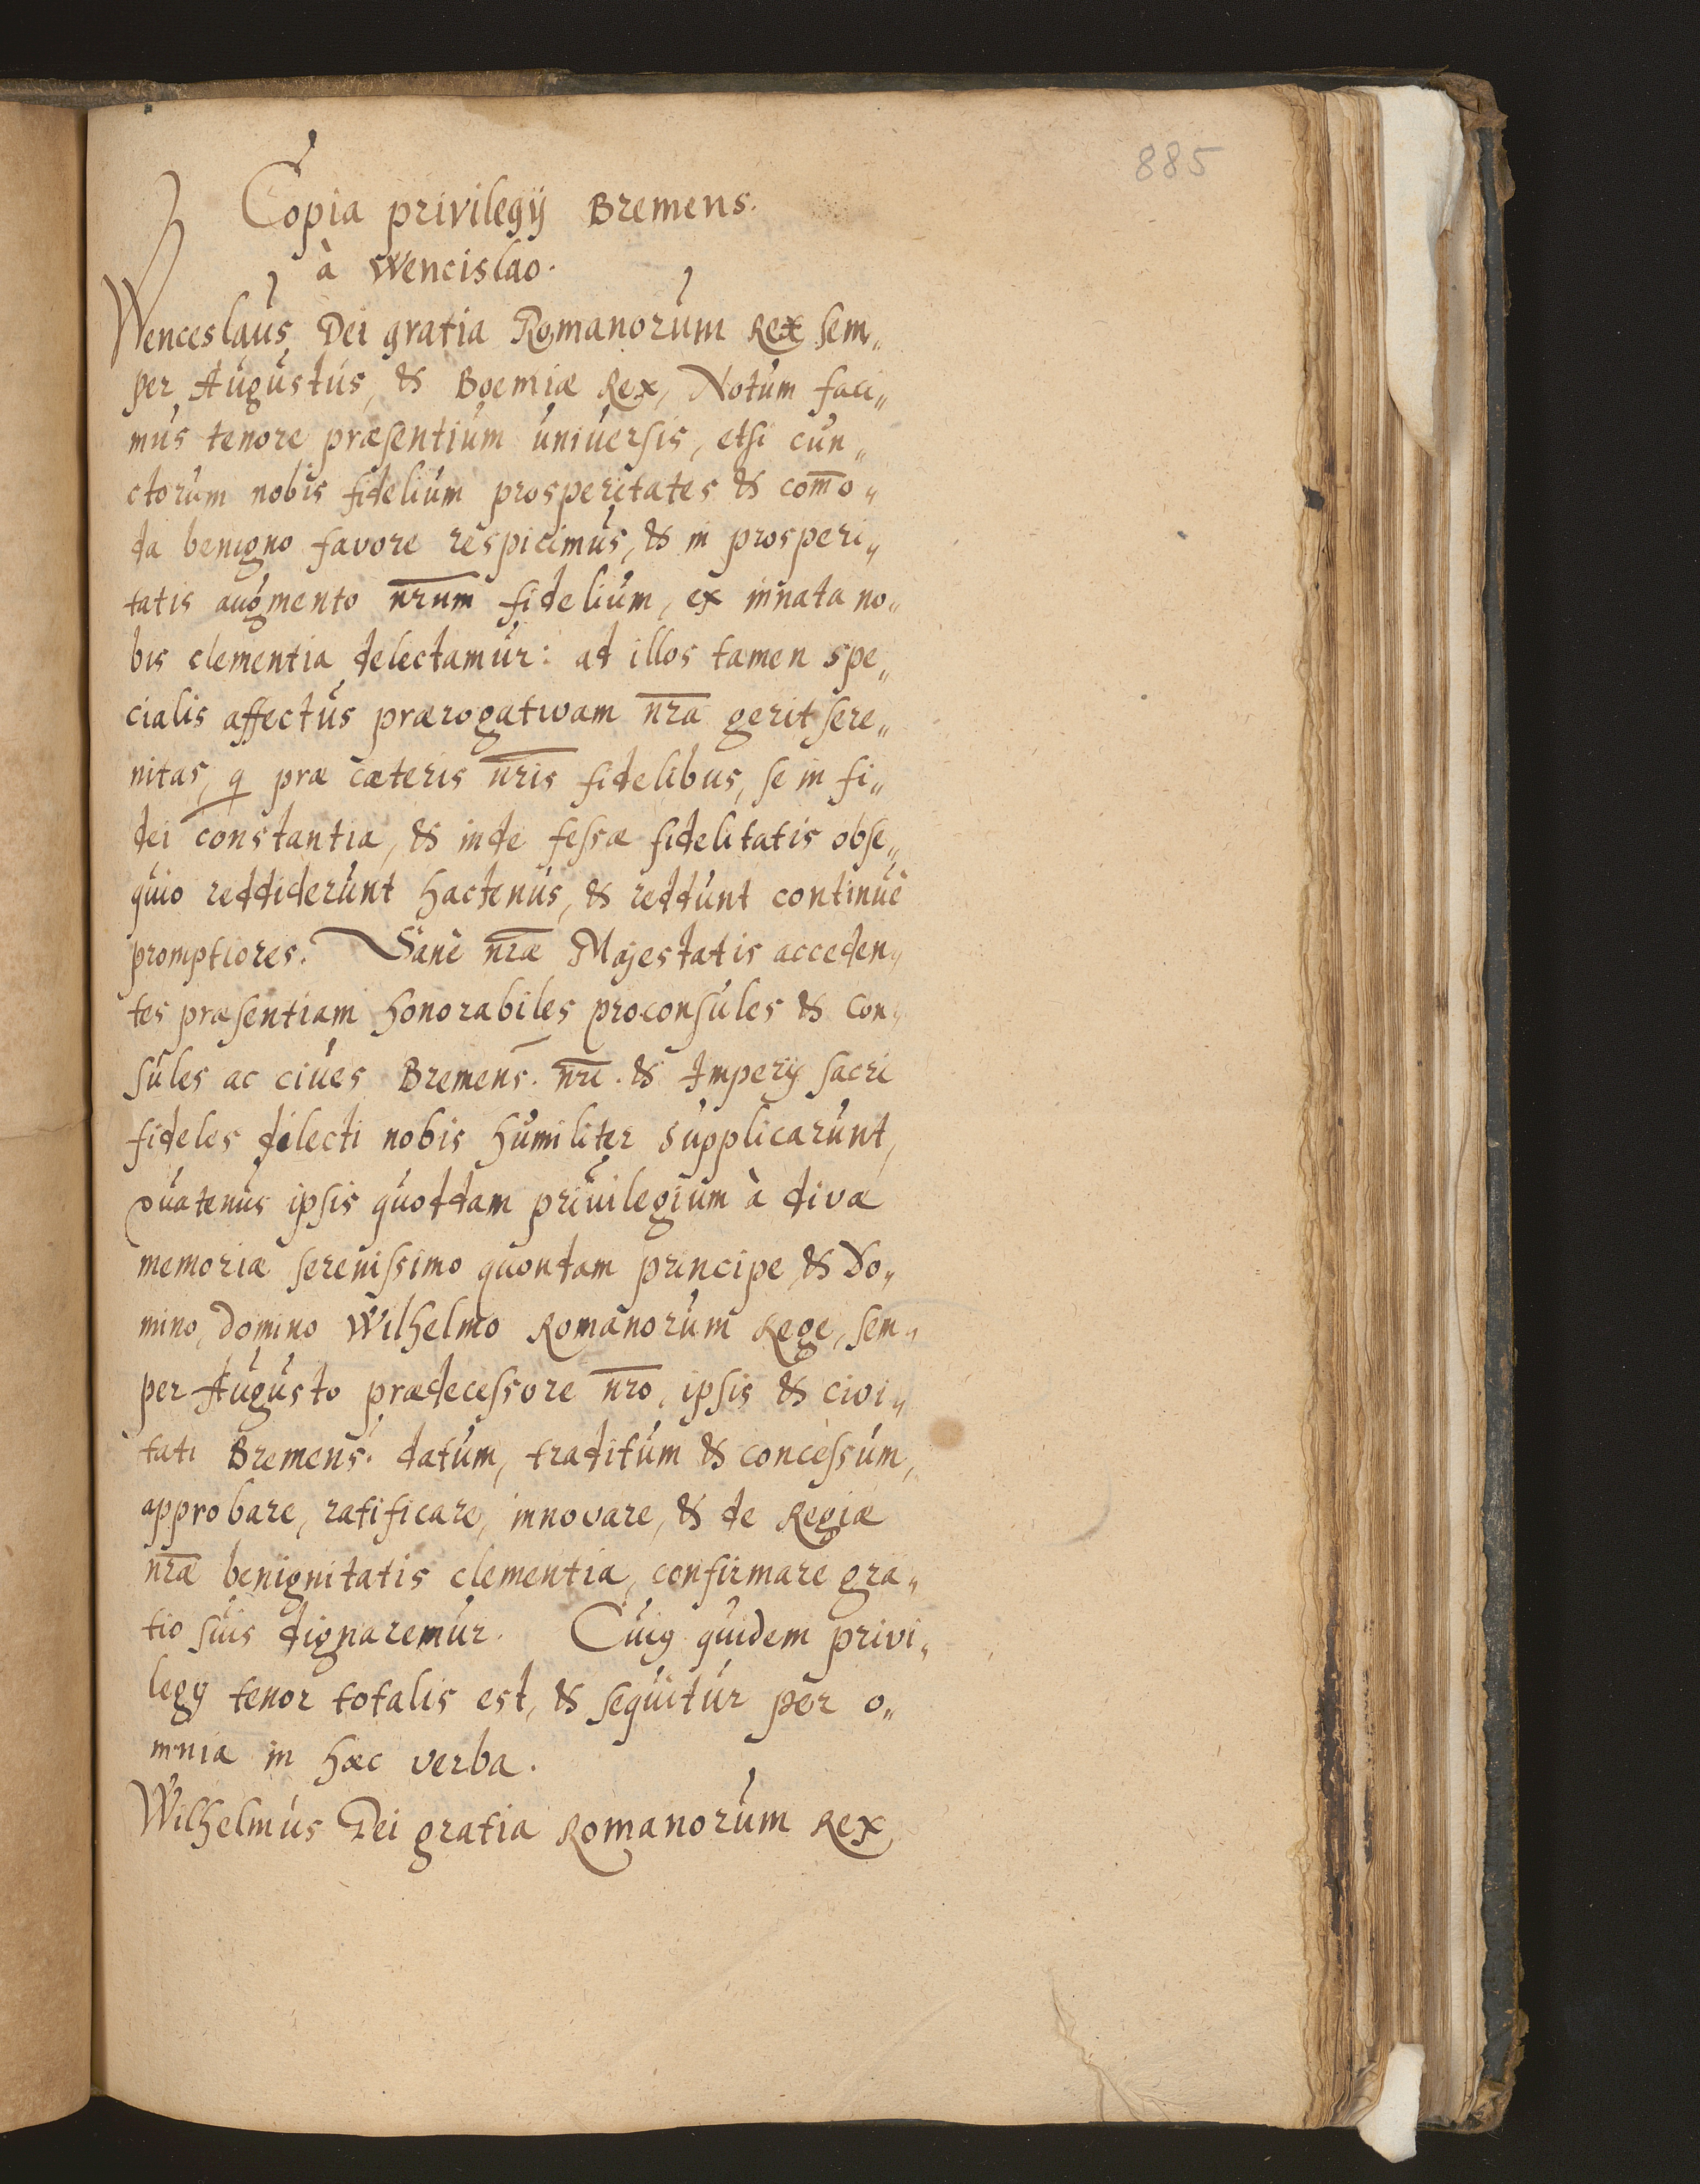 885
Copia privilegij Bremens.
à Wencislao.
Wenceslaus Dei gratia Romanorum Rex sem„
per Augustus, & Boemiæ Rex, Notum faci„
mus tenore præsentium universis, etsi cun„
ctorum nobis fidelium prosperitates & com̄o„
da benigno favore respicimus, & in prosperi„
tatis augmento nr̄um fidelium, ex innata no„
bis clementia delectamur: ad illos tamen spe„
cialis affectus prærogativam nr̄a gerit sere„
nitas, q præ cæteris nr̄is fidelibus, se in fi„
dei constantia, & inde fessæ fidelitatis obse„
quio reddiderunt hactenus, & reddunt continuè
promptiores. Sanè nr̄æ Majestatis acceden„
tes præsentiam honorabiles proconsules & con„
sules ac cives Bremens. nr̄i. & Imperij sacri
fideles dilecti nobis humiliter supplicarunt,
quatenus ipsis quoddam privilegium à divæ
memoriæ serenissimo quondam principe & Do„
mino, domino Wilhelmo Romanorum Rege, sem„
per Augusto prædecessore nr̄o, ipsis & civi„
tati Bremens. datum, traditum & concessum,
approbare, ratificare, innovare, & de Regiæ
nr̄æ benignitatis clementia, confirmare gra„
tio suis dignaremur. Cuiꝰ quidem privi„
legij tenor totalis est, & sequitur per o„
mnia in hæc verba.
Wilhelmus Dei gratia Romanorum Rex